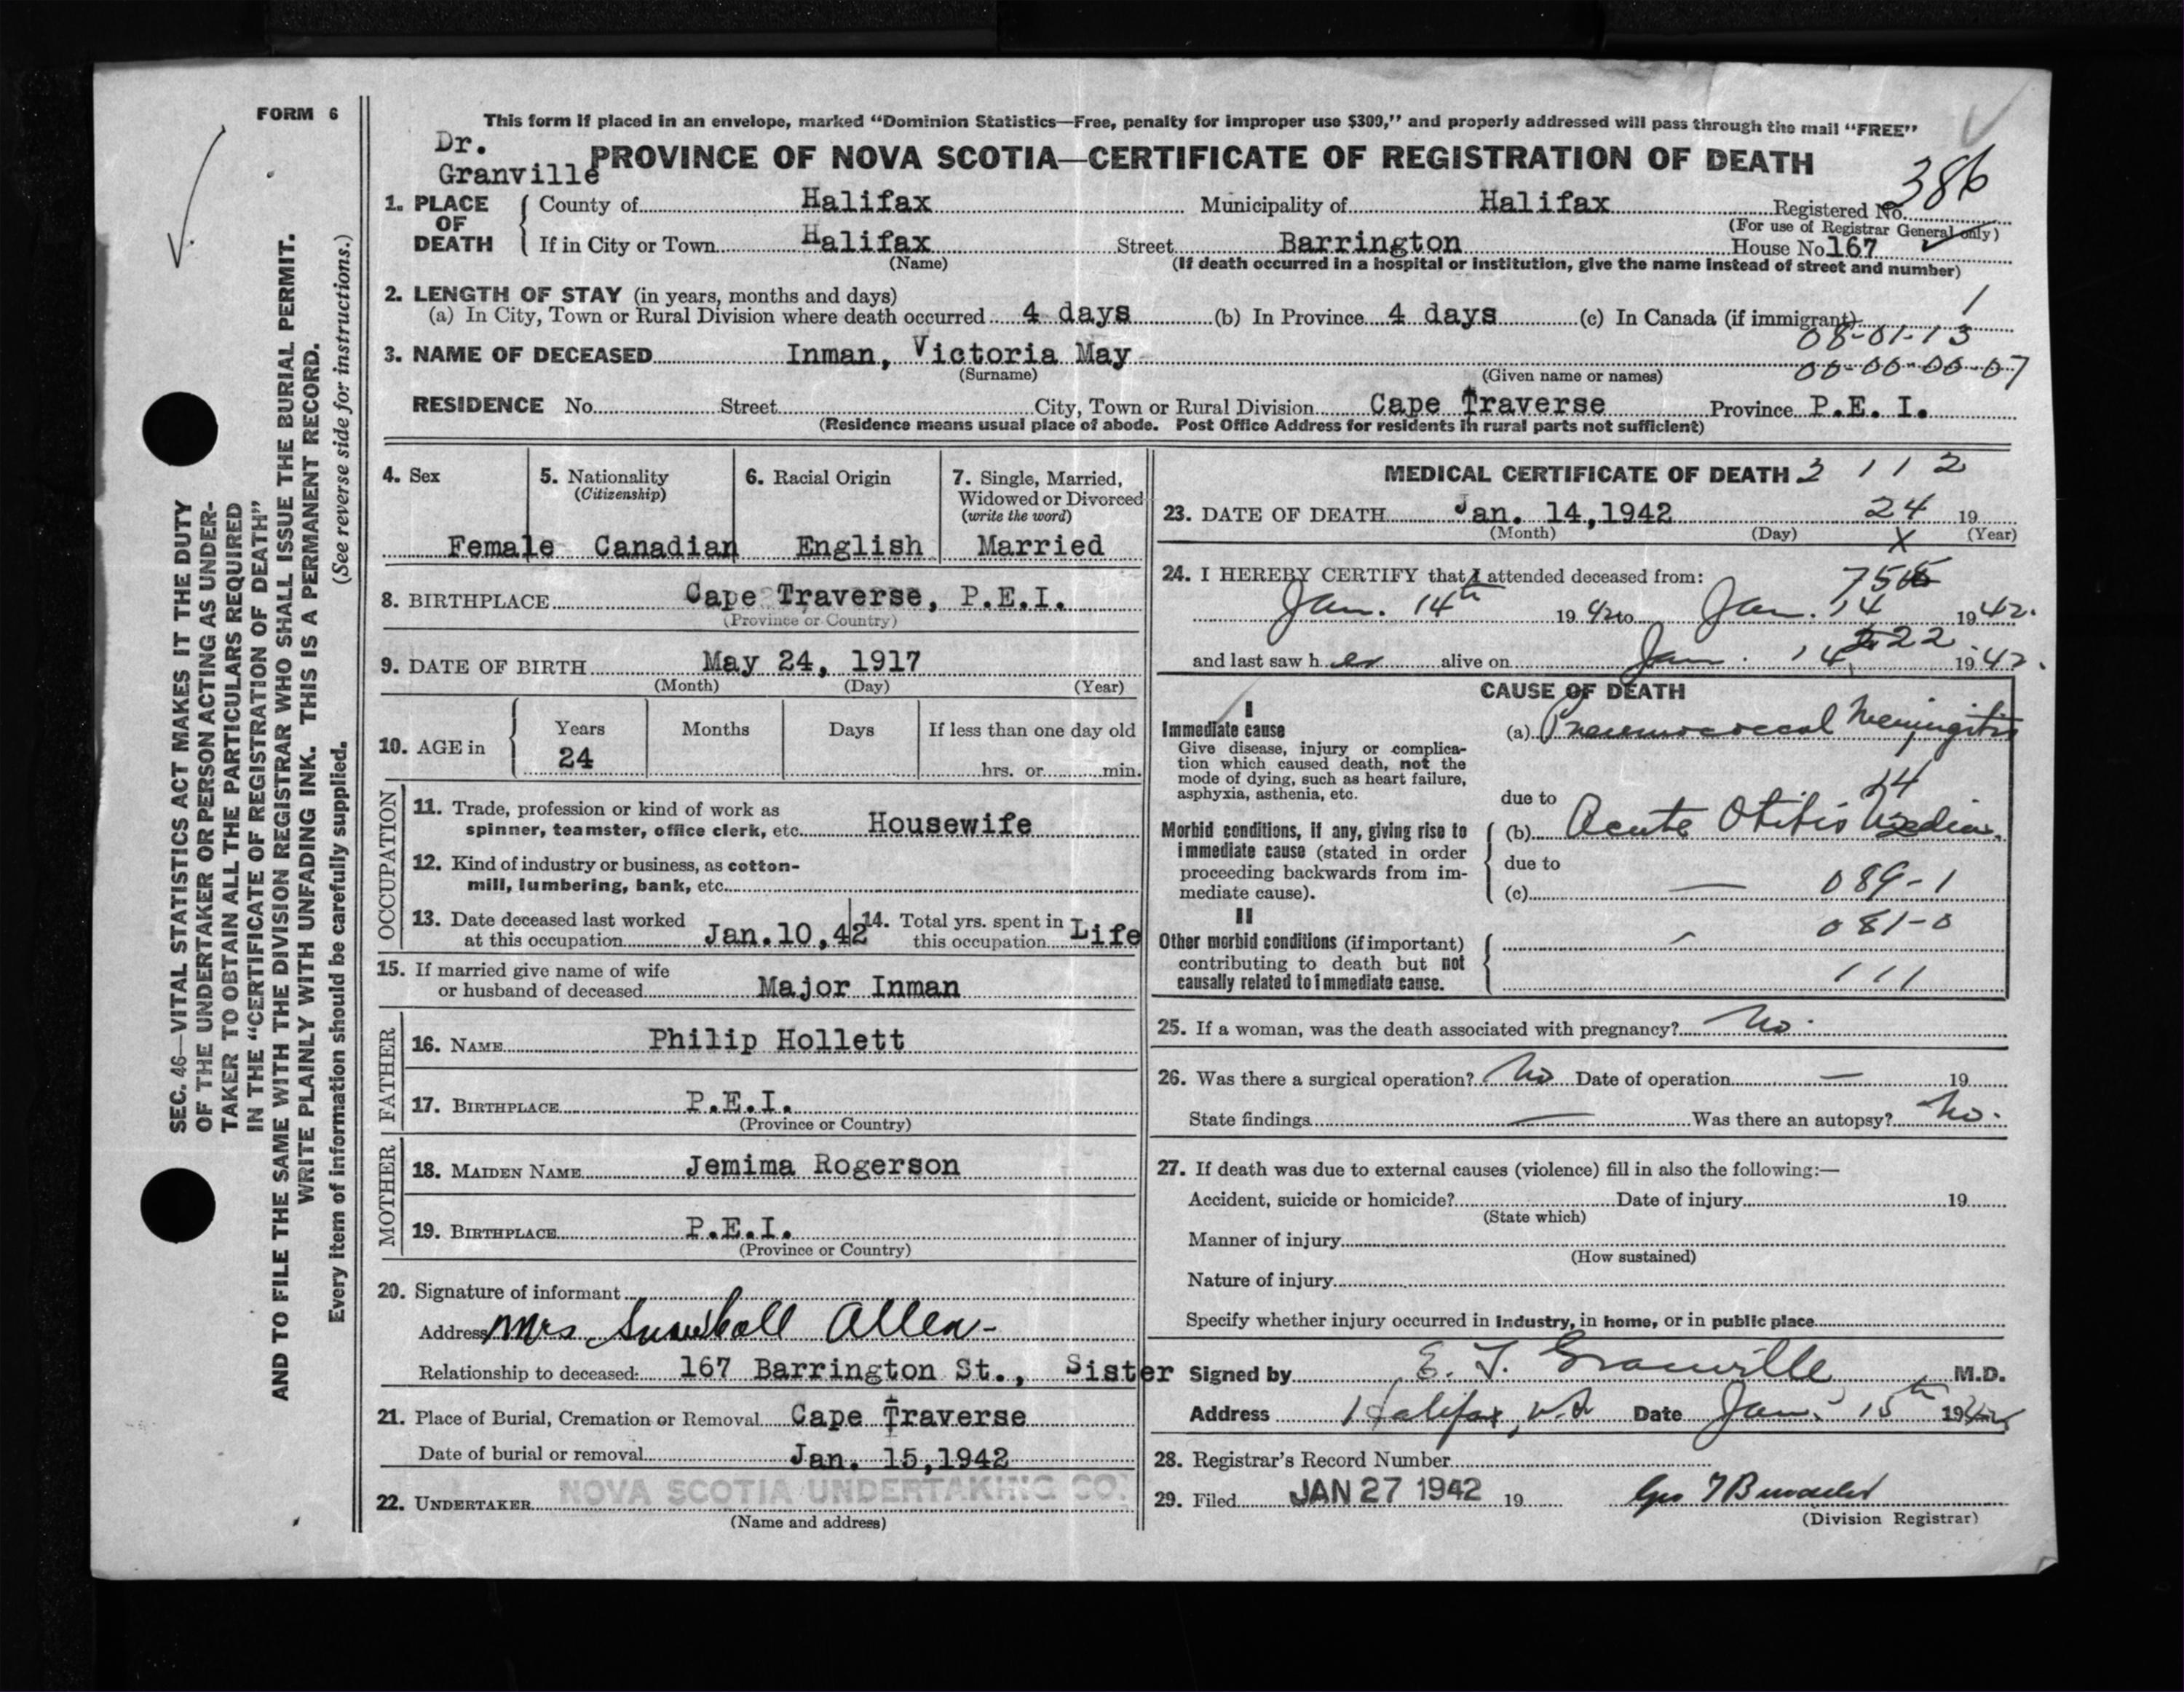 FORM 6
This form if placed in an envelope, marked "Dominion Statistics—Free, penalty for improper use $300," and properly addressed will pass through the mail "FREE"
Dr.
Granville
PROVINCE OF NOVA SCOTIA—CERTIFICATE OF REGISTRATION OF DEATH
386
1. PLACE OF DEATH County of Halifax Municipality of Halifax Registered No.
(For use of Registrar General only)
If in City or Town Halifax Street Barrington House No 167
(Name) (If death occurred in a hospital or institution, give the name instead of street and number)
2. LENGTH OF STAY (in years, months and days)
(a) In City, Town or Rural Division where death occurred 4 days (b) In Province 4 days (c) In Canada (if immigrant) 1
08-01-13
3. NAME OF DECEASED Inman, Victoria May
(Surname) (Given name or names) 00-00-00-07
RESIDENCE No. Street City, Town or Rural Division Cape Traverse Province P.E. I.
(Residence means usual place of abode. Post Office Address for residents in rural parts not sufficient)
4. Sex 5. Nationality 6. Racial Origin 7. Single, Married,
(Citizenship) Widowed or Divorced
(write the word)
Female Canadian English Married
8. BIRTHPLACE Cape Traverse, P.E.I.
(Province or Country)
9. DATE OF BIRTH May 24, 1917
(Month) (Day) (Year)
10. AGE in Years Months Days If less than one day old
24 hrs. or min.
OCCUPATION
11. Trade, profession or kind of work as
spinner, teamster, office clerk, etc. Housewife
12. Kind of industry or business, as cotton-
mill, lumbering, bank, etc.
13. Date deceased last worked 14. Total yrs. spent in
at this occupation Jan.10,42 this occupation Life
15. If married give name of wife
or husband of deceased Major Inman
FATHER
16. NAME Philip Hollett
17. BIRTHPLACE P.E.I.
(Province or Country)
MOTHER
18. MAIDEN NAME Jemima Rogerson
19. BIRTHPLACE P.E.I.
(Province or Country)
20. Signature of informant
Address Mrs Allen
Relationship to deceased: 167 Barrington St., Sister
21. Place of Burial, Cremation or Removal Cape Traverse
Date of burial or removal Jan. 15,1942
22. UNDERTAKER NOVA SCOTIA UNDERTAKING CO.
(Name and address)
MEDICAL CERTIFICATE OF DEATH 3 1 1 2
23. DATE OF DEATH Jan. 14,1942 24 19
(Month) (Day) X (Year)
24. I HEREBY CERTIFY that I attended deceased from:
Jan. 14th 1942 to Jan. 14 1942.
and last saw her alive on Jan. 14, 1942.
CAUSE OF DEATH
I
Immediate cause (a) Pneumococcal Meningitis
Give disease, injury or complica-
tion which caused death, not the
mode of dying, such as heart failure,
asphyxia, asthenia, etc. due to
Morbid conditions, if any, giving rise to (b) Acute Otitis Media.
immediate cause (stated in order due to
proceeding backwards from im-
mediate cause). (c) — 089-1
II 081-0
Other morbid conditions (if important)
contributing to death but not
causally related to immediate cause. 111
25. If a woman, was the death associated with pregnancy? No.
26. Was there a surgical operation? No Date of operation — 19
State findings — Was there an autopsy? No.
27. If death was due to external causes (violence) fill in also the following:—
Accident, suicide or homicide? Date of injury 19
(State which)
Manner of injury
(How sustained)
Nature of injury
Specify whether injury occurred in industry, in home, or in public place
Signed by E. F. Granville M.D.
Address Halifax, N.S Date Jan. 15th 1942
28. Registrar's Record Number
29. Filed JAN 27 1942 19
(Division Registrar)
SEC. 46—VITAL STATISTICS ACT MAKES IT THE DUTY
OF THE UNDERTAKER OR PERSON ACTING AS UNDER-
TAKER TO OBTAIN ALL THE PARTICULARS REQUIRED
IN THE "CERTIFICATE OF REGISTRATION OF DEATH"
AND TO FILE THE SAME WITH THE DIVISION REGISTRAR WHO SHALL ISSUE THE BURIAL PERMIT.
WRITE PLAINLY WITH UNFADING INK. THIS IS A PERMANENT RECORD.
Every item of information should be carefully supplied. (See reverse side for instructions.)